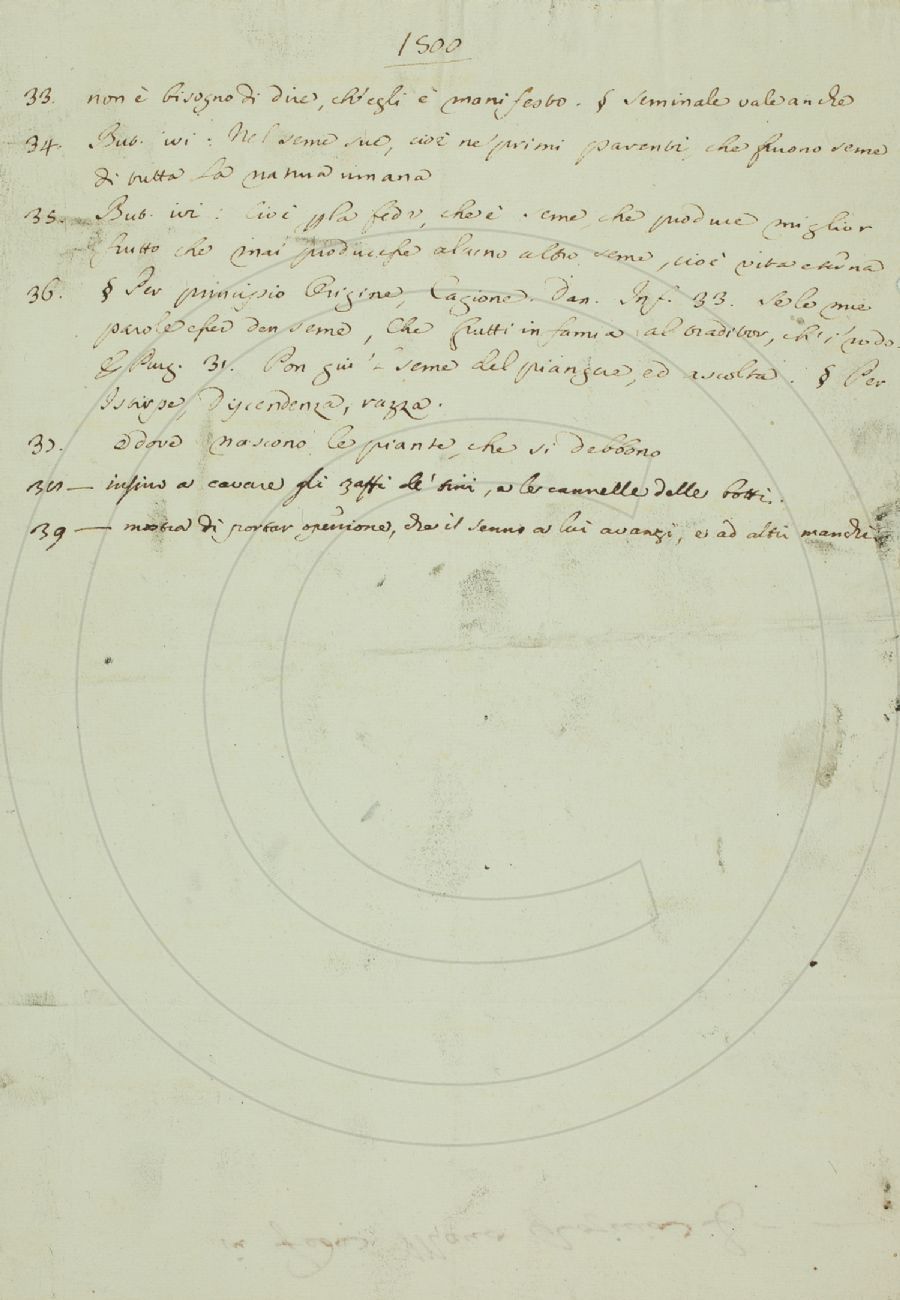 1800
33. non è bisogno di dire, ch'egli è manifesto. § seminale vale anche
34. But. ivi: Nel seme sue, cioè ne' primi parenti, che furono seme
di tutta la natura umana
35. But. ivi: Cioè pla fede, che è seme, che produce miglior
frutto che mai producesse alcuno altro seme, cioè vita eterna
36. § Per principio Origine, Cagione. Dan. Inf. 33. Se le mie
parole esser den seme, Che frutti infamia al traditor, ch'i' rodo.
E Purg. 31. Pon giù 'l seme del piangere, ed ascolta. § Per
Istirpe, Discendenza, razza.
37. dove nascono le piante, che si debbono
38 — insino a cavare gli zaffi de' tini, e le cannelle delle botti.
39 — mostra di portar openione, che il senno a lui avanzi, e ad altri manchi